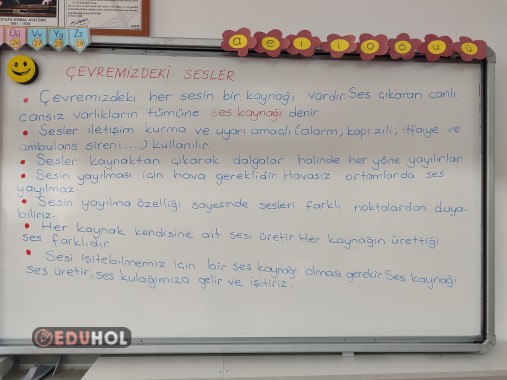 MUSTAFA KEMAL ATATÜRK
1881 - 1938
Üü Vv Yy Zz
26 27 28 29
a e ı i o ö u ü
ÇEVREMİZDEKİ SESLER
• Çevremizdeki her sesin bir kaynağı vardır. Ses çıkaran canlı,
cansız varlıkların tümüne ses kaynağı denir.
• Sesler iletişim kurma ve uyarı amaçlı (alarm, kapı zili, itfaiye ve
ambulans sireni ....) kullanılır.
• Sesler kaynaktan çıkarak dalgalar halinde her yöne yayılırlar.
• Sesin yayılması için hava gereklidir. Havasız ortamlarda ses
yayılmaz.
• Sesin yayılma özelliği sayesinde sesleri farklı noktalardan duya-
biliriz.
• Her kaynak kendisine ait sesi üretir. Her kaynağın ürettiği
ses farklıdır.
• Sesi işitebilmemiz için bir ses kaynağı olması gerekir. Ses kaynağı
ses üretir, ses kulağımıza gelir ve işitiriz.
EDUHOL